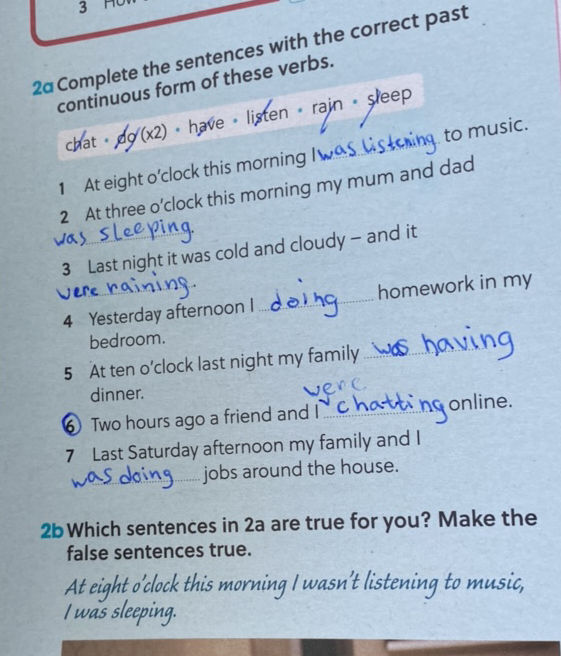 3
2a Complete the sentences with the correct past
continuous form of these verbs.
chat · do (x2) · have · listen · rain · sleep
1 At eight o'clock this morning I was listening to music.
2 At three o'clock this morning my mum and dad
was sleeping.
3 Last night it was cold and cloudy – and it
were raining.
4 Yesterday afternoon I doing homework in my
bedroom.
5 At ten o'clock last night my family was having
dinner.
were
6 Two hours ago a friend and I chatting online.
7 Last Saturday afternoon my family and I
was doing jobs around the house.
2b Which sentences in 2a are true for you? Make the
false sentences true.
At eight o'clock this morning I wasn't listening to music,
I was sleeping.